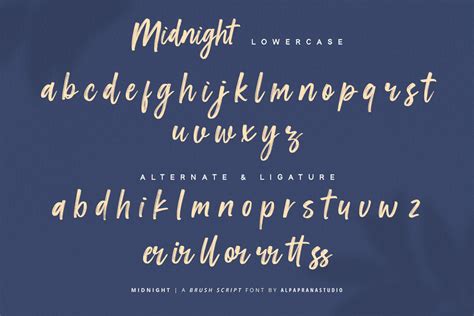 Midnight LOWERCASE
abcdefghijklmnopqrst
uvwxyz
ALTERNATE & LIGATURE
abdhiklmnoprstuwz
er ir ll or rr tt ss
MIDNIGHT | A BRUSH SCRIPT FONT BY ALPAPRANASTUDIO